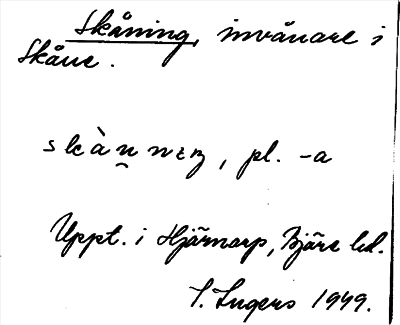 Skåning, invånare i
Skåne.
pl. -a
Uppt. i Hjärnarp, Bjäre hd.
S. Ingers 1949.